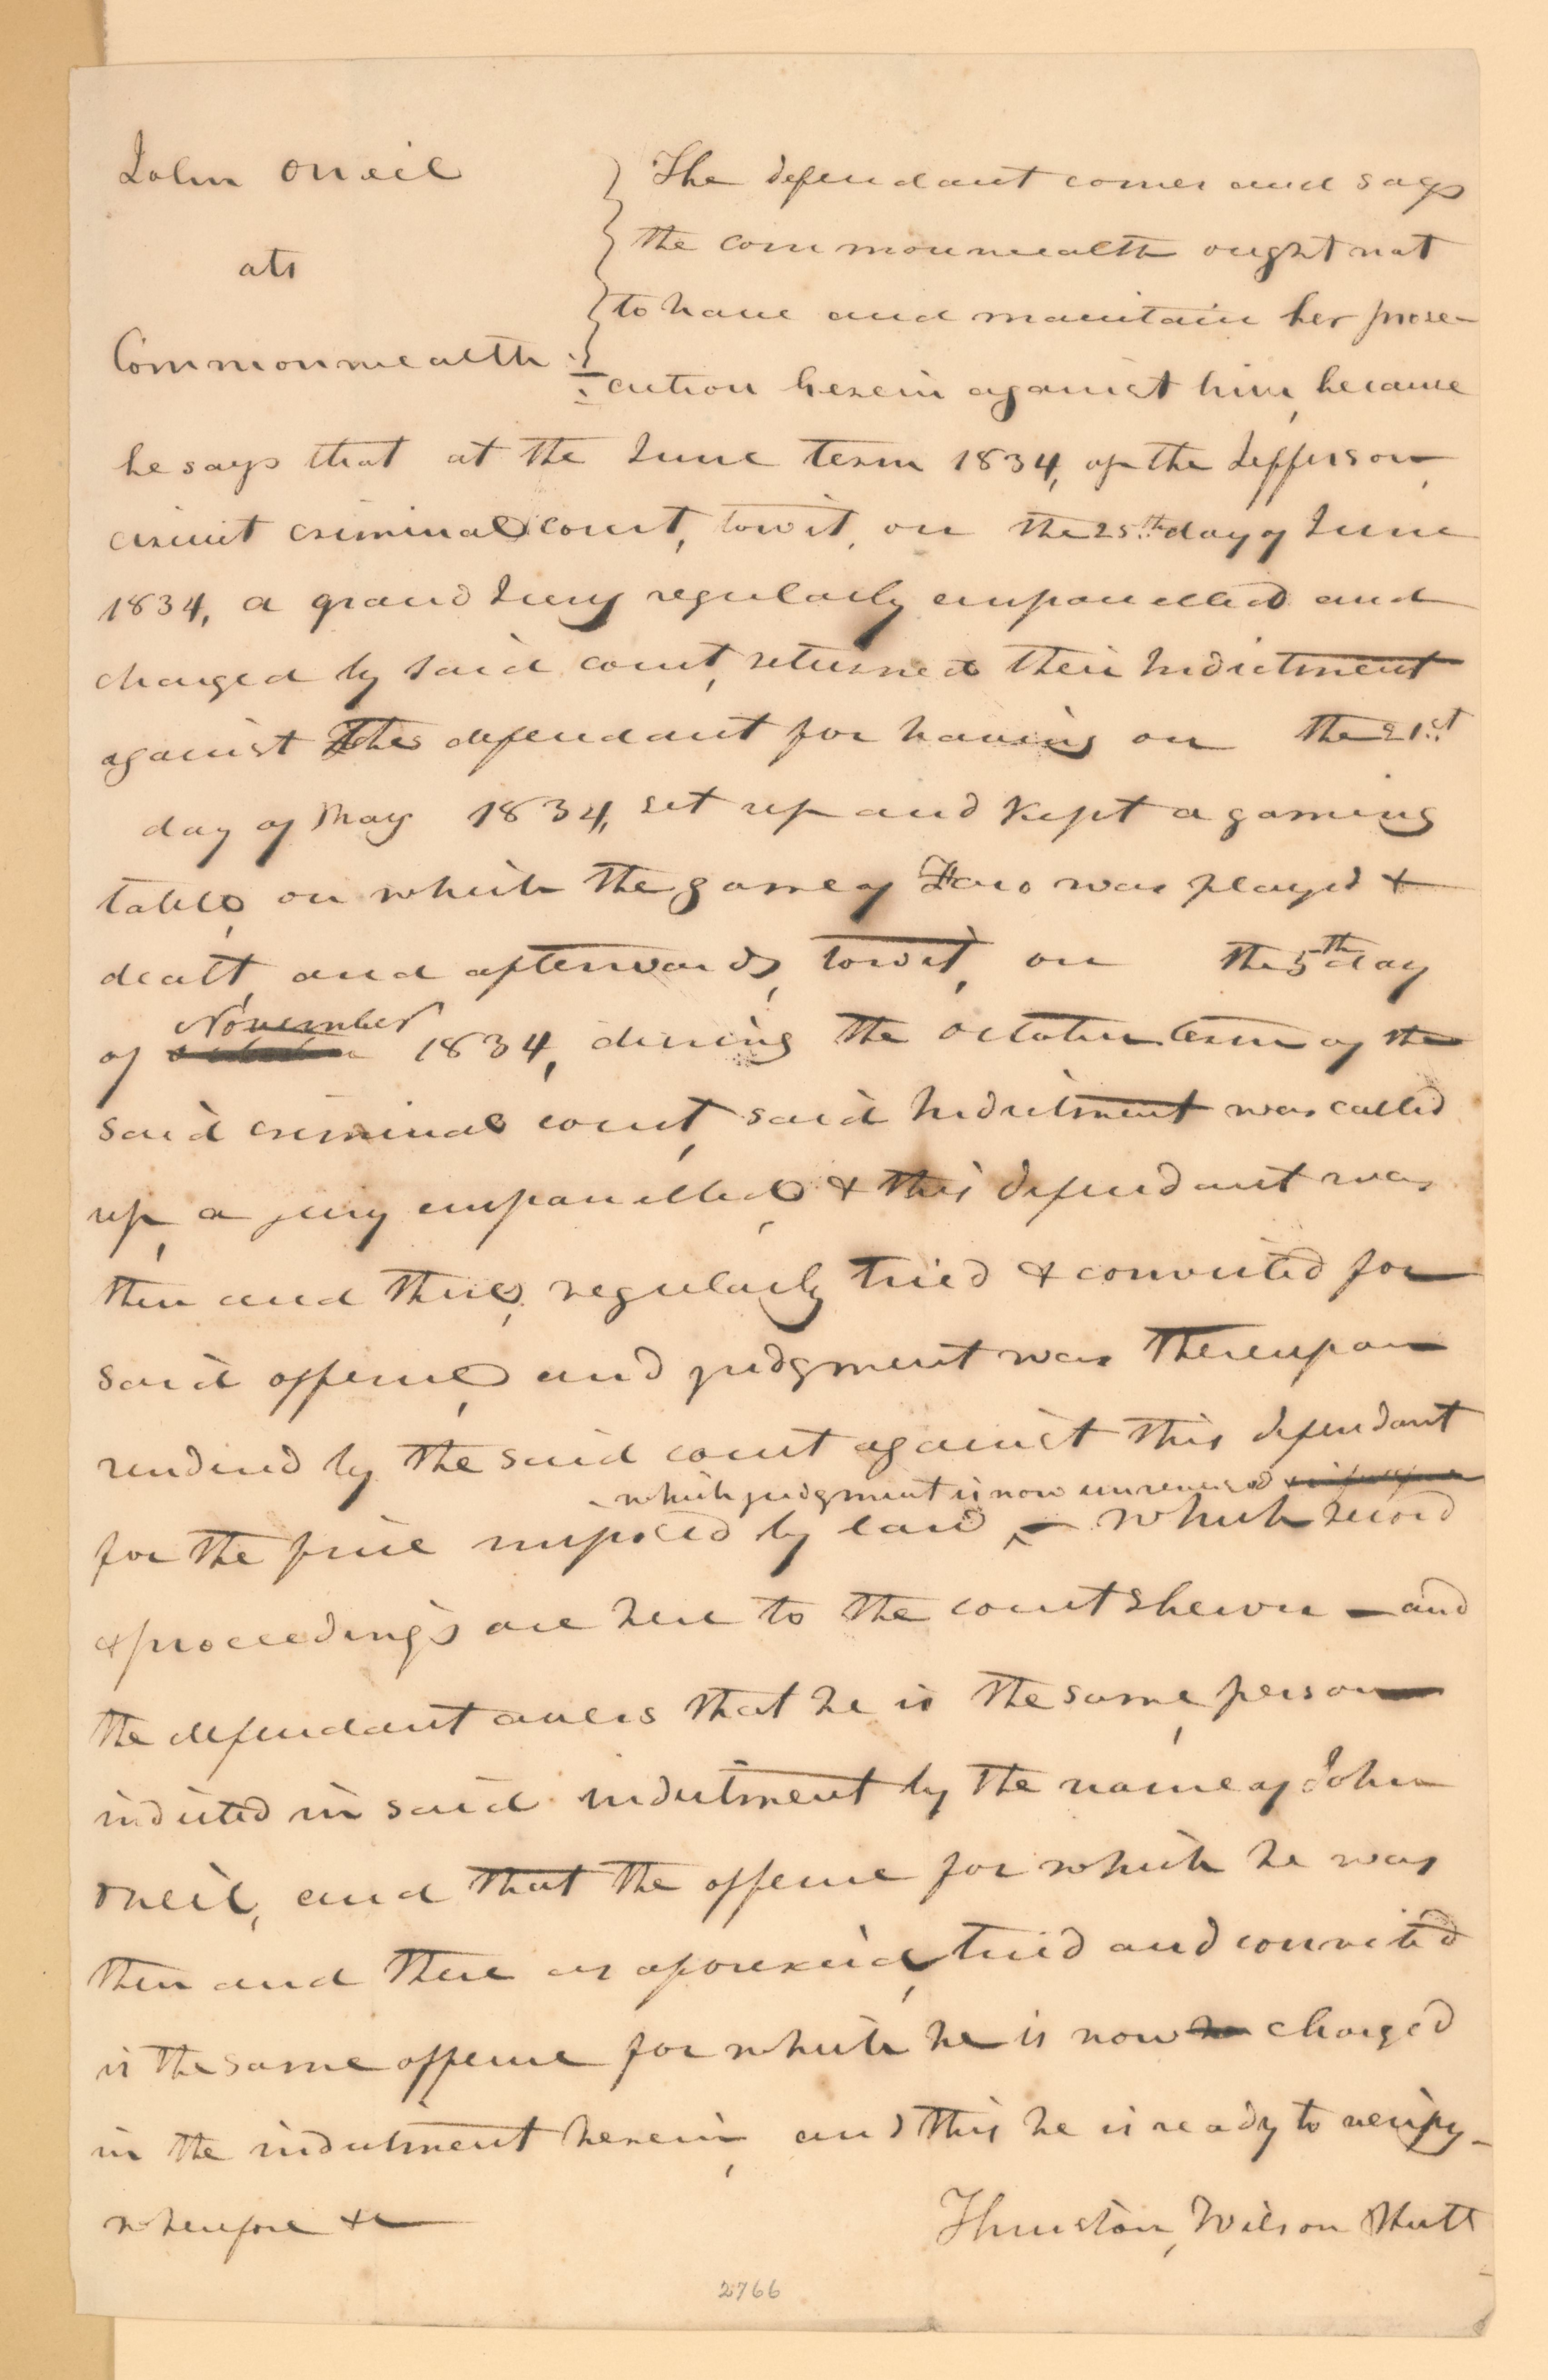 John Oneil
ats
Commonwealth
The defendant comes and says
the commonwealth ought not
to have and maintain her prose-
cution herein against him, because
he says that at the June term 1834, of the Jefferson,
circuit criminal court, towit, on the 25th day of June
1834, a grand Jury regularly empanelled and
charged by said court, returned their Indictment
against this defendant for having on the 21st
day of May 1834, set up and kept a gaming
table, on which the game of Faro was played &
dealt, and afterwards, towit, on the 5th day
November
of 1834, during the october term of the
said criminal court, said Indictment was called
up, a jury empanelled, & this defendant was
then and there, regularly tried & convicted for
said offence, and judgment was thereupon
rendered by the said court against this defendant
which judgment is now unreversed
for the fine imposed by law, – which record
& proceedings are here to the court shewn – and
the defendant avers that he is the same, person
indicted in said indictment by the name of John
Oneil, and that the offence for which he was
then and there as aforesaid, tried and convicted
is the same offence for which he is now charged
in the indictment herein, and this he is ready to verify –
wherefore &c
Thruston, Wilson
2766